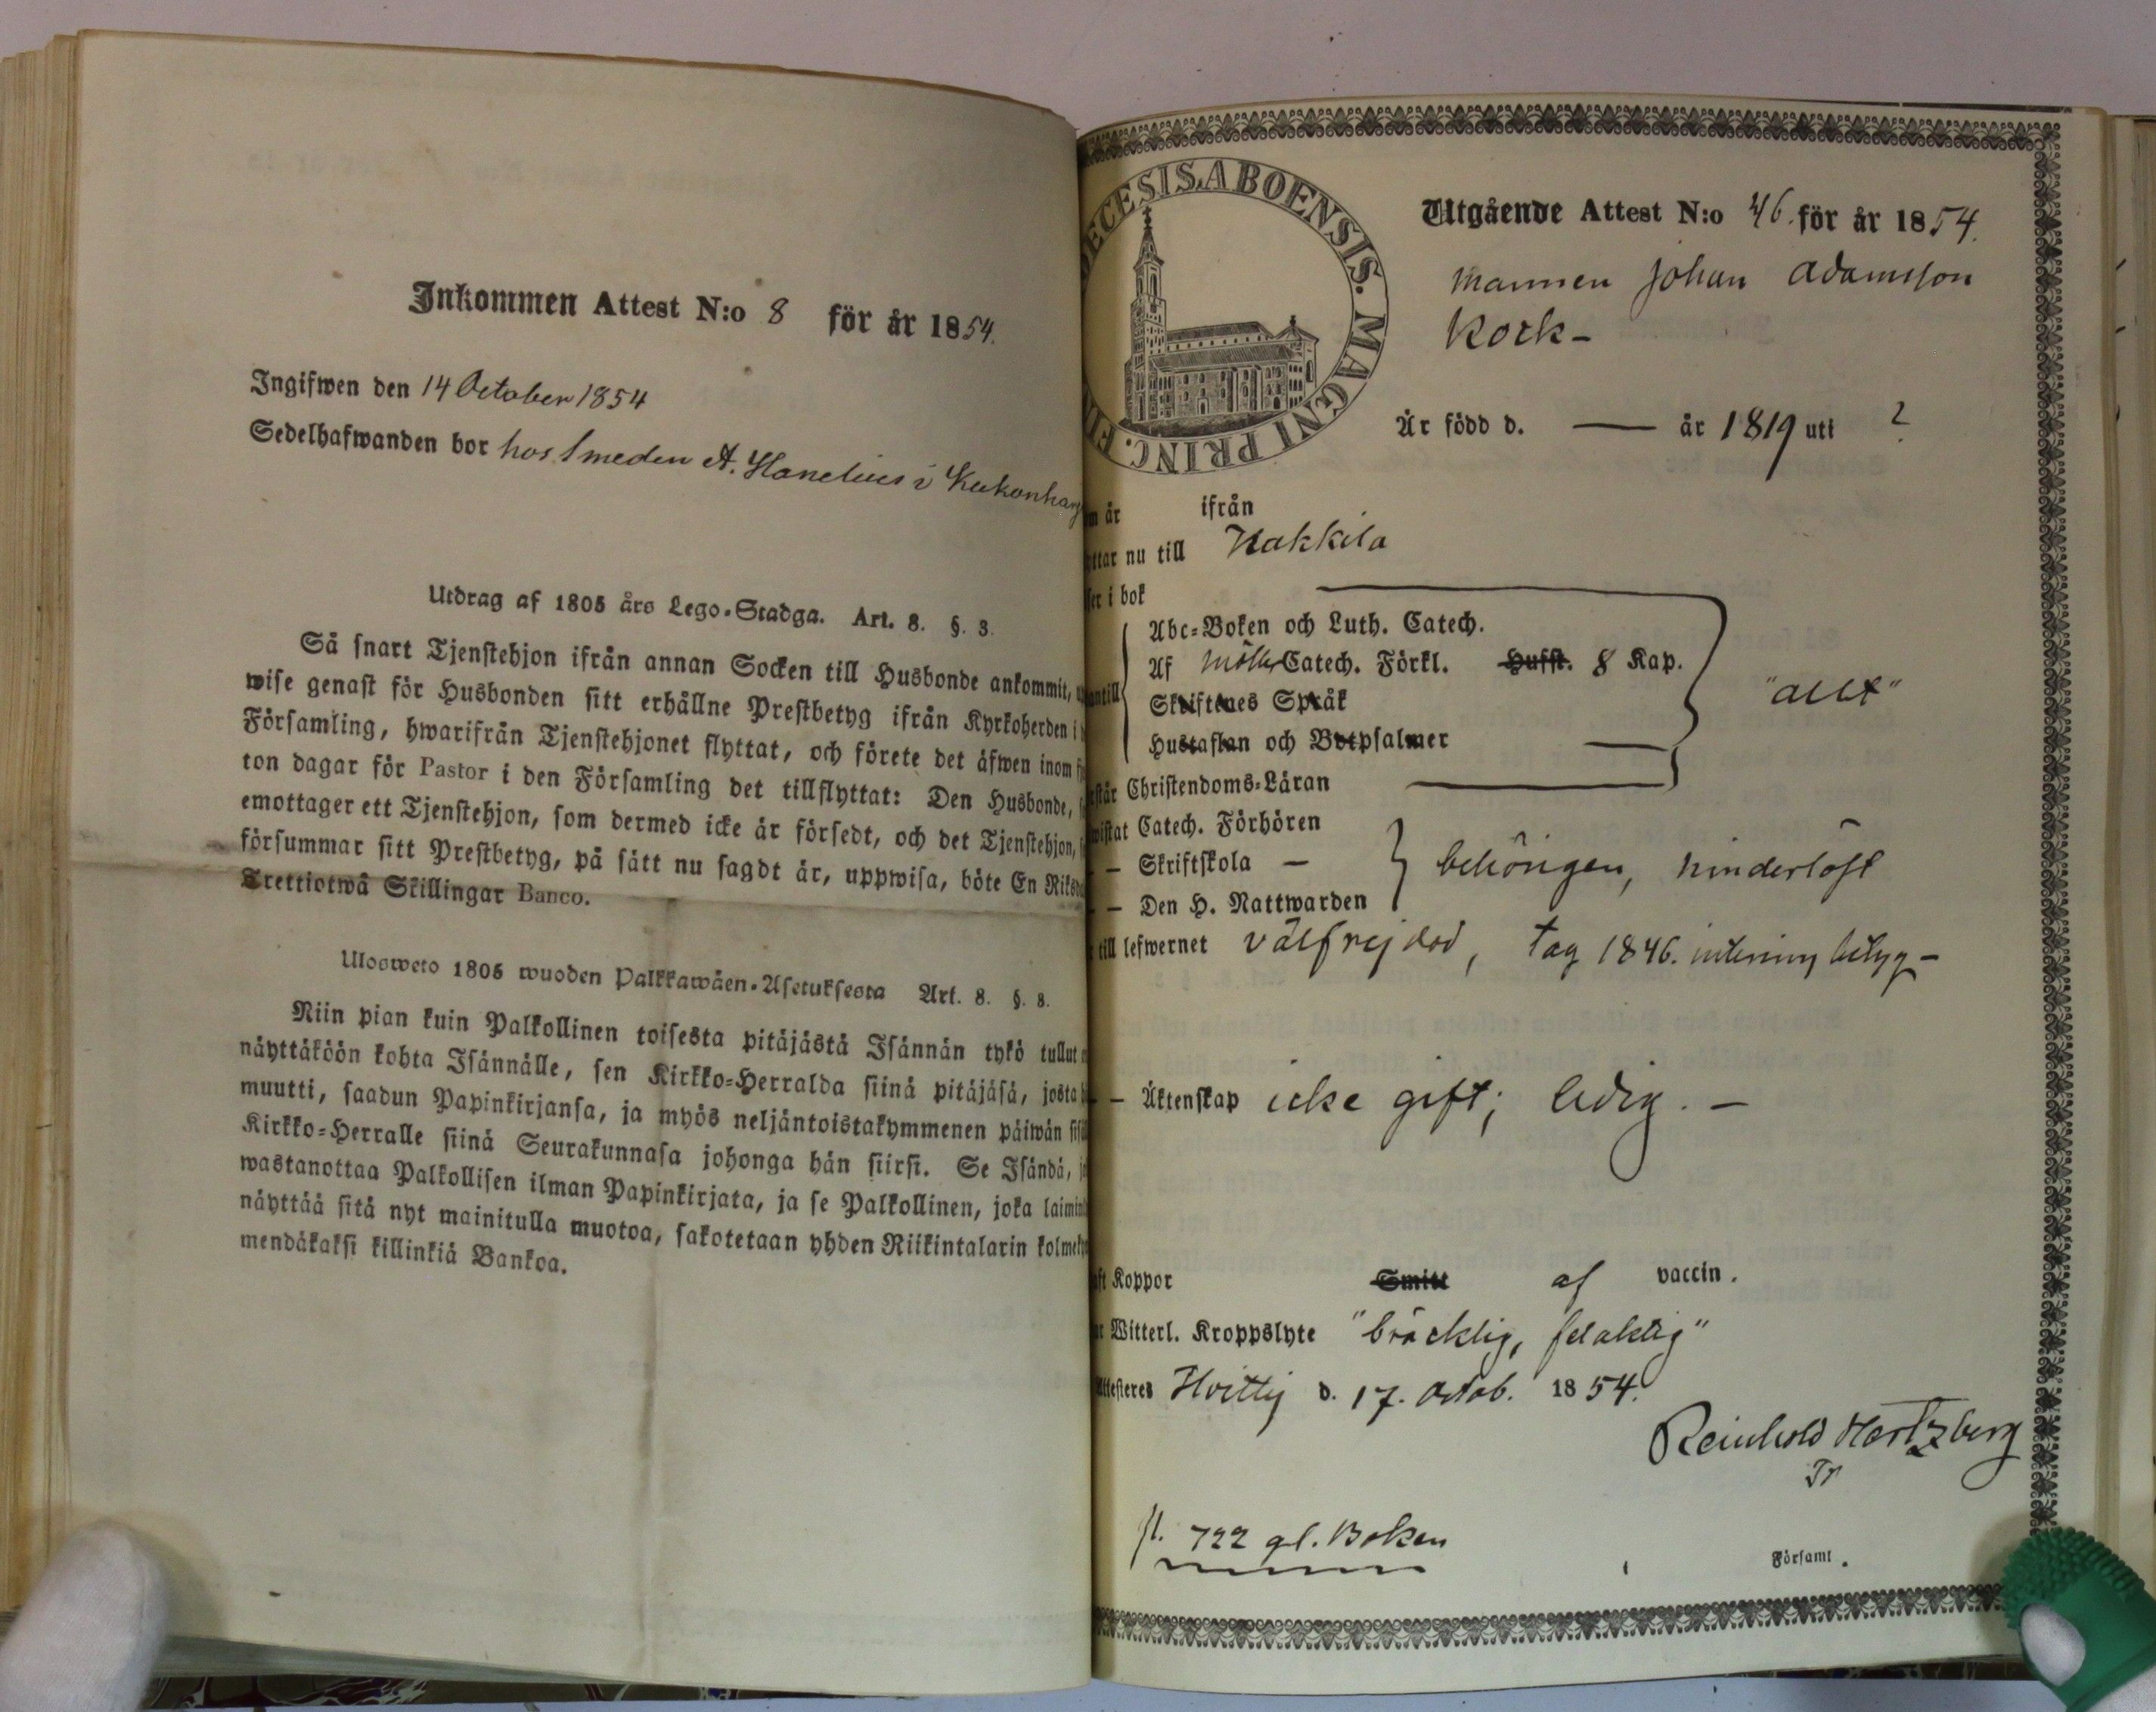 Inkommen Attest N:o 8 för år 1854.
Ingifwen den 14 October 1854
Sedelhafwanden bor hos Smeden A. Hanelius i
Utdrag af 1805 års Lego-Stadga. Art. 8. §. 3.
Så snart Tjenstehjon ifrån annan Socken till Husbonde ankommit,
wise genast för Husbonden sitt erhållne Prestbetyg ifrån Kyrkoherden i
Församling, hwarifrån Tjenstehjonet flyttat, och förete det äfwen inom
ton dagar för Pastor i den Församling det tillflyttat: Den Husbonde,
emottager ett Tjenstehjon, som dermed icke är försedt, och det Tjenstehjon,
försummar sitt Prestbetyg, på sätt nu sagdt är, uppwisa, böte En Riksd
Trettiotwå Skillingar Banco.
Ulosweto 1805 wuoden Palkkawäen-Asetuksesta Art. 8. §. 8.
Niin pian kuin Palkollinen toisesta pitäjästä Isännän tykö tullut
näyttäköön kohta Isännälle, sen Kirkko-Herralda siinä pitäjäsä, josta
muutti, saadun Papinkirjansa, ja myös neljäntoistakymmenen päiwän
Kirkko-Herralle siinä Seurakunnasa johonga hän siirsi. Se Isändä,
wastanottaa Palkollisen ilman Papinkirjata, ja se Palkollinen, joka laimin
näyttää sitä nyt mainitulla muotoa, sakotetaan yhden Riikintalarin kolmek
mendäkaksi killinkiä Bankoa.
ECESIS. ABOENSIS. MAGNI PRINC. FI
Utgående Attest N:o 46. för år 1854.
mannen Johan Adamsson
Kock-
Är född d. — år 1819 uti ?
är ifrån
ttar nu till Hakkila
ser i bok
Abc-Boken och Luth. Catech.
Af Catech. Förkl. Hufst. 8 Kap.
antill
Skriftenes Språk
"allt"
Hustaflan och Botpsalmer
står Christendoms-Läran
wistat Catech. Förhören
— Skriftskola —
behörigen, hinderlöst
— Den H. Nattwarden
till lefwernet välfrejdad, tag 1846. betyg-
— Äktenskap icke gift; ledig. —
aft Koppor Smitt af vaccin.
Witterl. Kroppslyte "bräcklig, felaktig"
Attesteres Hvittis d. 17. Octob. 1854.
Reinhold Hertzberg
722 gl. Boken
Församl.